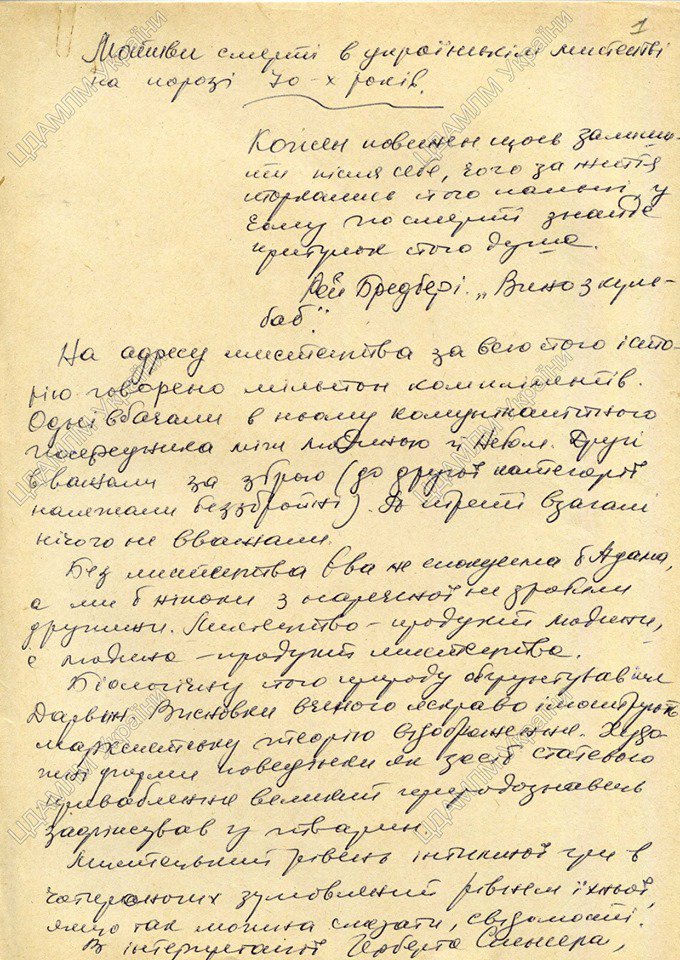 1
Мотиви смерті в українськім мистецтві
на порозі 70-х років.
Кожен повинен щось залиши-
ти після себе, чого за життя
торкались його пальці, у
чому по смерті знайде
притулок його душа.
Рей Бредбері. „Вино з куль-
баб".
На адресу мистецтва за всю його істо-
рію говорено мільйон компліментів.
Одні вбачали в ньому комунікантного
посередника між людиною й Небом. Другі
вважали за зброю (до другої категорії
належали беззбройні). А треті взагалі
нічого не вважали.
Без мистецтва Єва не спокусила б Адама,
а ми б ніколи з нареченої не зробили
дружини. Мистецтво – продукт людини,
а людина – продукт мистецтва.
Біологічну його природу обґрунтував
Дарвін. Висновки вченого яскраво ілюструють
марксистську теорію відображення. Худо-
жні форми поведінки як засіб статевого
приваблення великий природознавець
зафіксував у тварин.
Мистецький рівень інтимної гри в
чотириногих зумовлений рівнем їхньої,
якщо так можна сказати, свідомості.
В інтерпретації Герберта Спенсера,
ЦДАМЛМ України
ЦДАМЛМ України
ЦДАМЛМ України
ЦДАМЛМ України
ЦДАМЛМ України
ЦДАМЛМ України